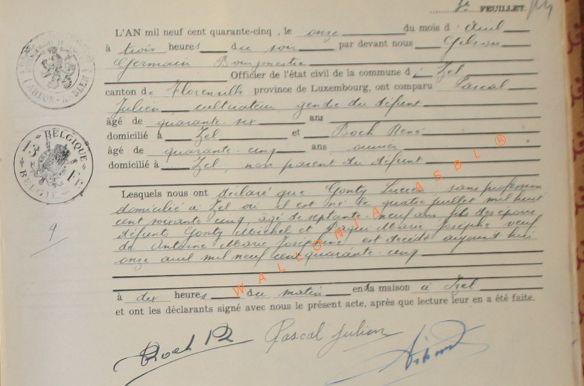 3e FEUILLET.
L'AN mil neuf cent quarante-cinq, le onze du mois d'Avril
à trois heures du soir par devant nous Gibon
Germain Bourgmestre
Officier de l'état civil de la commune d'Izel
canton de Florenville province de Luxembourg, ont comparu Pascal
Julien cultivateur gendre du défunt
âgé de quarante-six ans
domicilié à Izel et Bock René
âgé de quarante-cinq ans
domicilié à Izel non parent du défunt
Lesquels nous ont déclaré que Gonty Lucien sans profession
domicilié à Izel où il est né le quatre juillet mil huit
cent soixante cinq, âgé de septante neuf ans fils des époux
défunts Gonty Michel et Marie Josèphe veuf
de Antoine Marie Joséphine est décédé aujourd'hui
onze avril mil neuf cent quarante-cinq
à dix heures du matin en sa maison à Izel
et ont les déclarants signé avec nous le présent acte, après que lecture leur en a été faite.
Bock R
Pascal Julien
BELGIQUE
3 Fr
BELGIË
WALLONIA ASBL ®